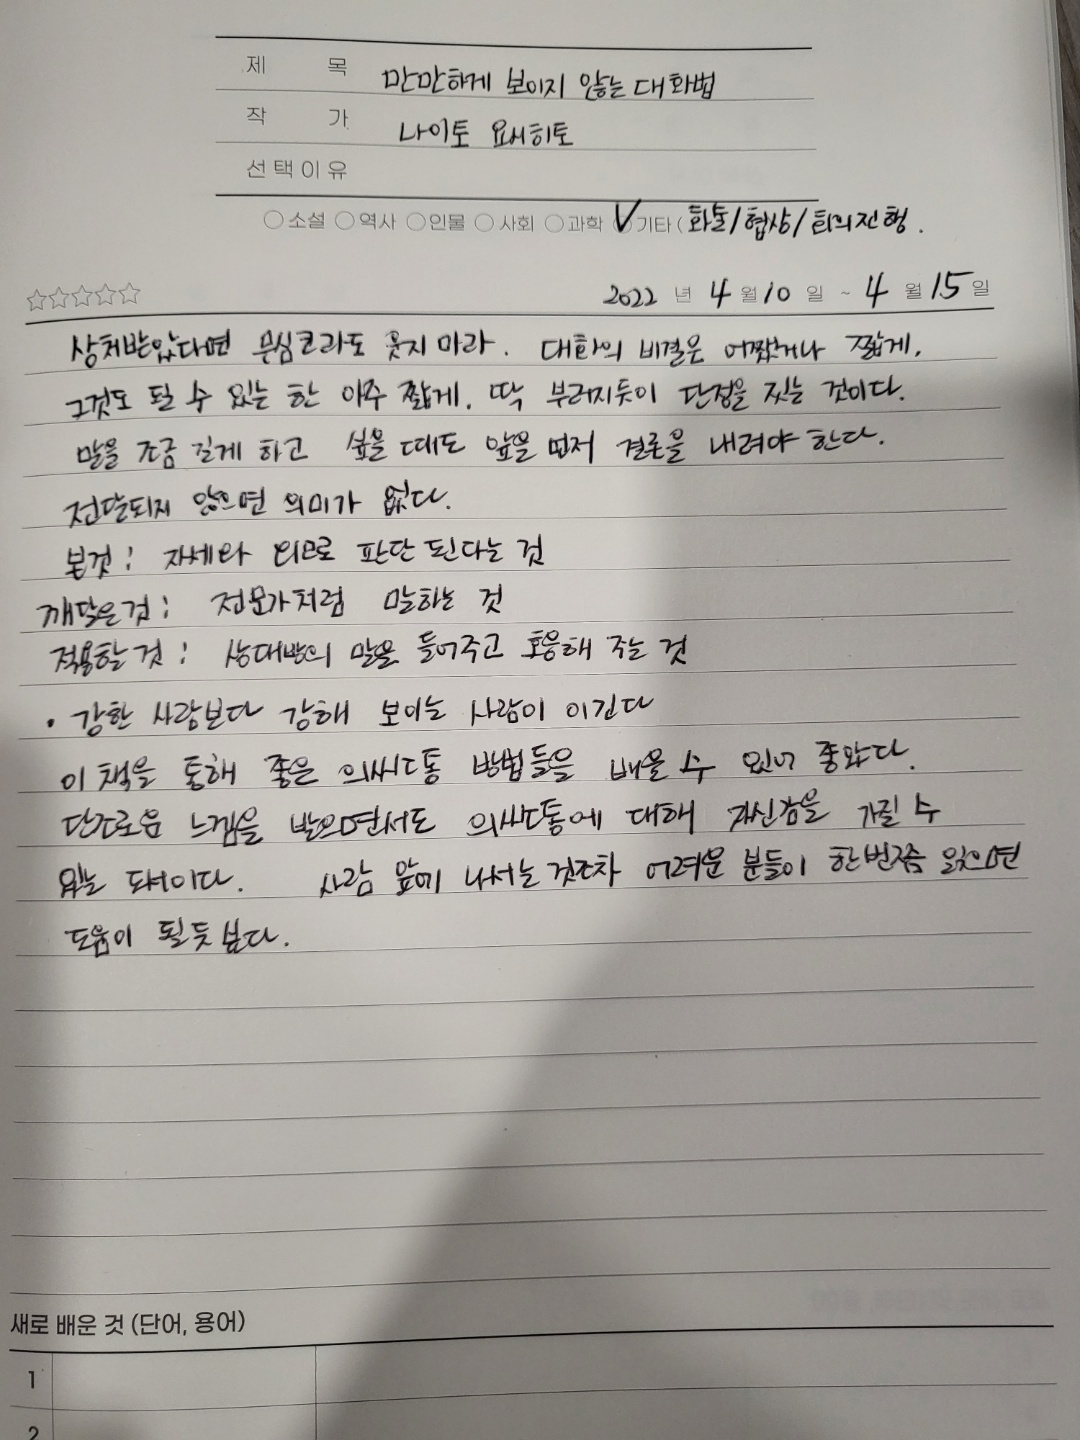 제 목 만만하게 보이지 않는 대화법
작 가 나이토 요시히토
선택이유
○소설 ○역사 ○인물 ○사회 ○과학 ○기타 (화술/협상/회의진행.
☆☆☆☆☆ 2022 년 4 월 10 일 ~ 4 월 15 일
상처받았다면 무심코라도 웃지 마라. 대화의 비결은 어쨌거나 짧게,
그것도 될 수 있는 한 아주 짧게, 딱 부러지듯이 단정을 짓는 것이다.
말을 조금 길게 하고 싶을 때도 앞을 먼저 결론을 내려야 한다.
전달되지 않으면 의미가 없다.
본것: 자세와 외모로 판단 된다는 것
깨달은것: 전문가처럼 말하는 것
적용할 것: 상대방의 말을 들어주고 호응해 주는 것
• 강한 사람보다 강해 보이는 사람이 이긴다
이 책을 통해 좋은 의싸소통 방법들을 배울 수 있어 좋았다.
단조로움 느낌을 받으면서도 의싸소통에 대해 자신감을 가질 수
있는 도서이다. 사람 앞에 나서는 것조차 어려운 분들이 한번쯤 읽으면
도움이 될듯 보다.
새로 배운 것 (단어, 용어)
1
2